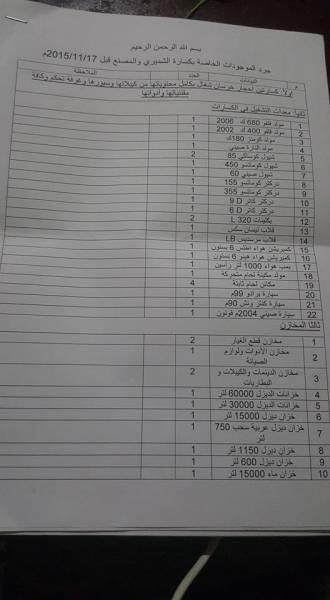 بسم الله الرحمن الرحيم
جرد الموجودات الخاصة بكسارة الشميري والمصنع قبل 2015/11/17م
م البيانات العدد الملاحظة
أولاً: كسارتين أحجار خرسان شغال بكامل محتوياتها من كيبلاتها وسيورها وغرفة تحكم وكافة
مقتنياتها وأدواتها
ثانياً: معدات التشغيل في الكسارات
1 مولد فلفو 680 ك 2006 1
2 مولد فلفو 400 ك 2002 1
3 مولد كومنز 180ك 1
4 مولد انارة صيني 1
5 شيول كوماكي 85 2
6 شيول كوماتسو 450 1
7 شيول صيني 60 1
8 دركتر كوماتسو 155 1
9 دركتر كوماتسو 355 1
10 دركتر كاتر D 9 1
11 دركتر كاتر D 6 1
12 بكلينات L 320 2
13 قلاب نيسان سكس 1
14 قلاب مرسديس LB 1
15 كمبريشن هواء اطلس 6 بستون 1
16 كمبريشن هواء هينو 6 بستون 1
17 بمب هواء 1000 لتر رأسين 1
18 مولد مكينة لحام متحركة 1
19 مكائن لحام ثابتة 4
20 سيارة برادو 99م 1
21 سيارة كنتر ونش 90م 1
22 سيارة صيني 2004م فوتون 1
ثالثا المخازن
1 مخازن قطع الغيار 2
2 مخازن الأدوات ولوازم 1
الصيانة
3 مخازن الدينمات والكيبلات و 2
البطاريات
4 خزانات الديزل 60000 لتر 1
5 خزانات الديزل 30000 لتر 1
6 خزان ديزل 15000 لتر 1
7 خزان ديزل عربية سحب 750 1
لتر
8 خزان ديزل 1150 لتر 1
9 خزان ديزل 600 لتر 1
10 خزان ماء 15000 لتر 1